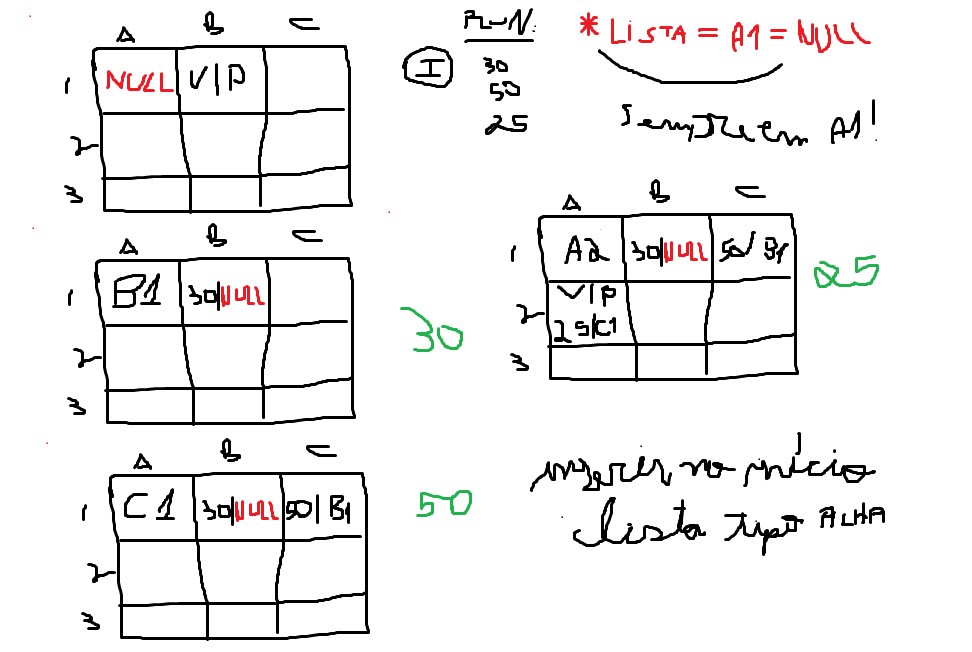 A B C
1 NULL V|P
2
3
I
R-N:
30
50
25
* LISTA = A1 = NULL
Sempre em A1!
A B C
1 B1 30|NULL
2
3
30
A B C
1 C1 30|NULL 50|B1
2
3
50
A B C
1 A2 30|NULL 50/B1
2 V|P
25|C1
3
25
inserer no início
lista tipo ALHA